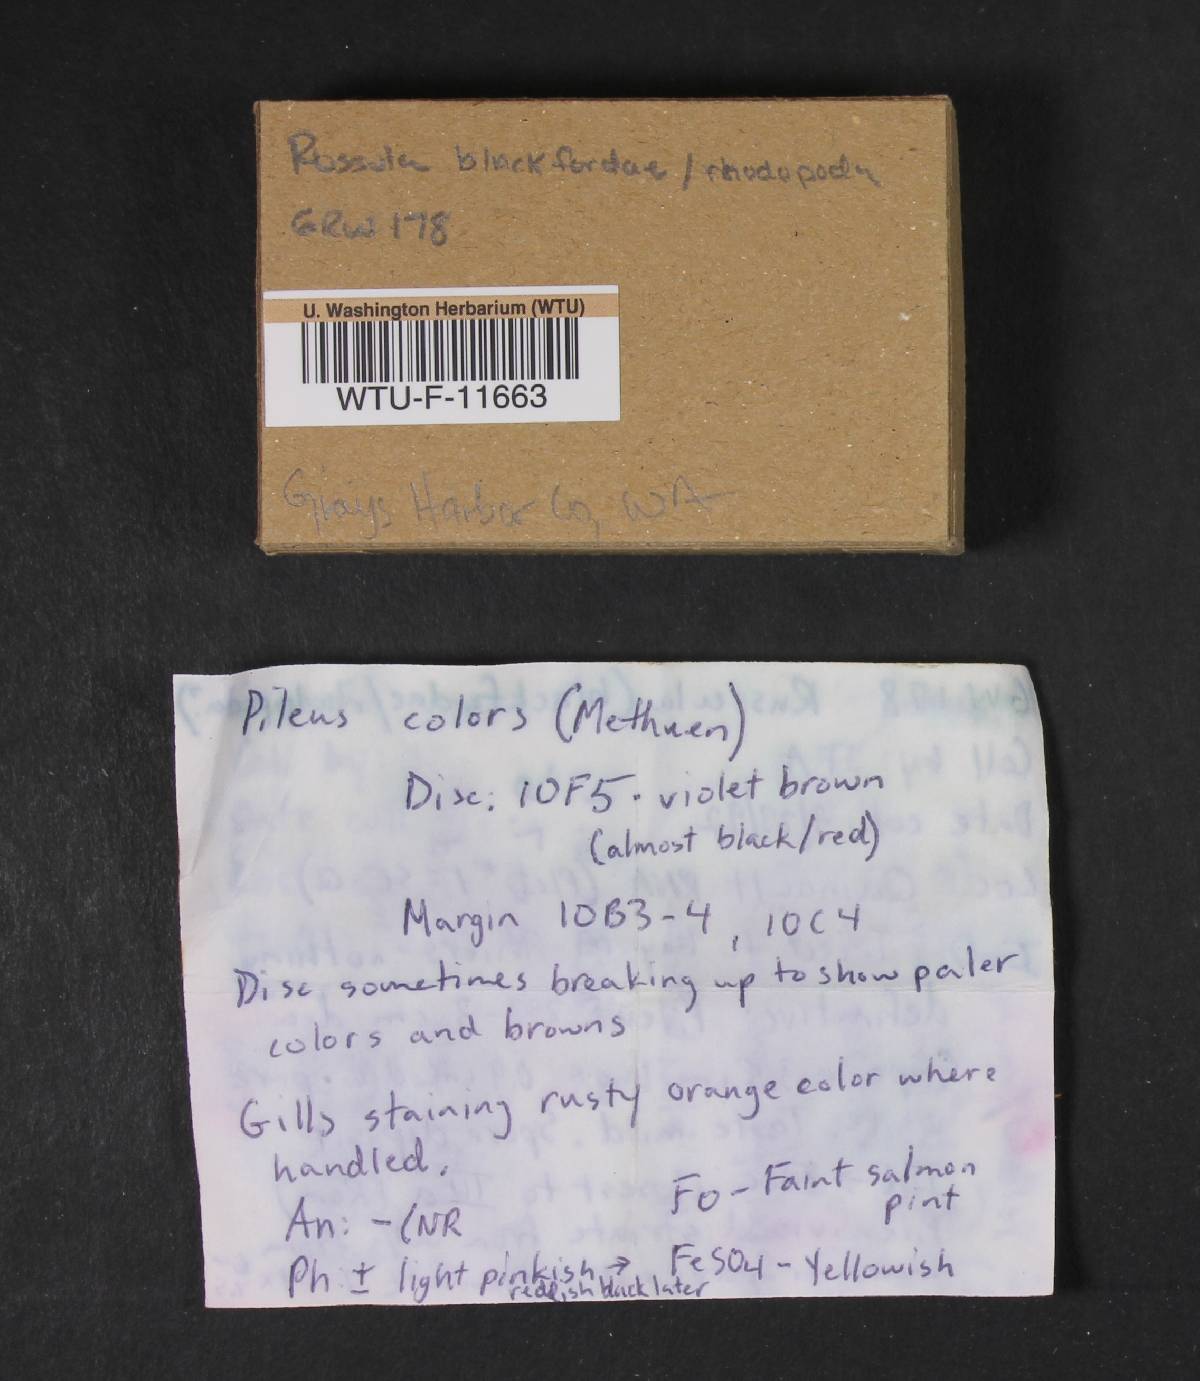 Russula blackfordae / rhodopoda
GRW 178
U. Washington Herbarium (WTU)
WTU-F-11663
Grays Harbor Co, WA
Pileus colors (Methuen)
Disc: 10F5 - violet brown
(almost black/red)
Margin 10B3-4, 10C4
Disc sometimes breaking up to show paler
colors and browns
Gills staining rusty orange color where
handled.
Fo - Faint salmon
pint
An: -(NR
Ph ± light pinkish →
reddish black later
FeSO4 - Yellowish